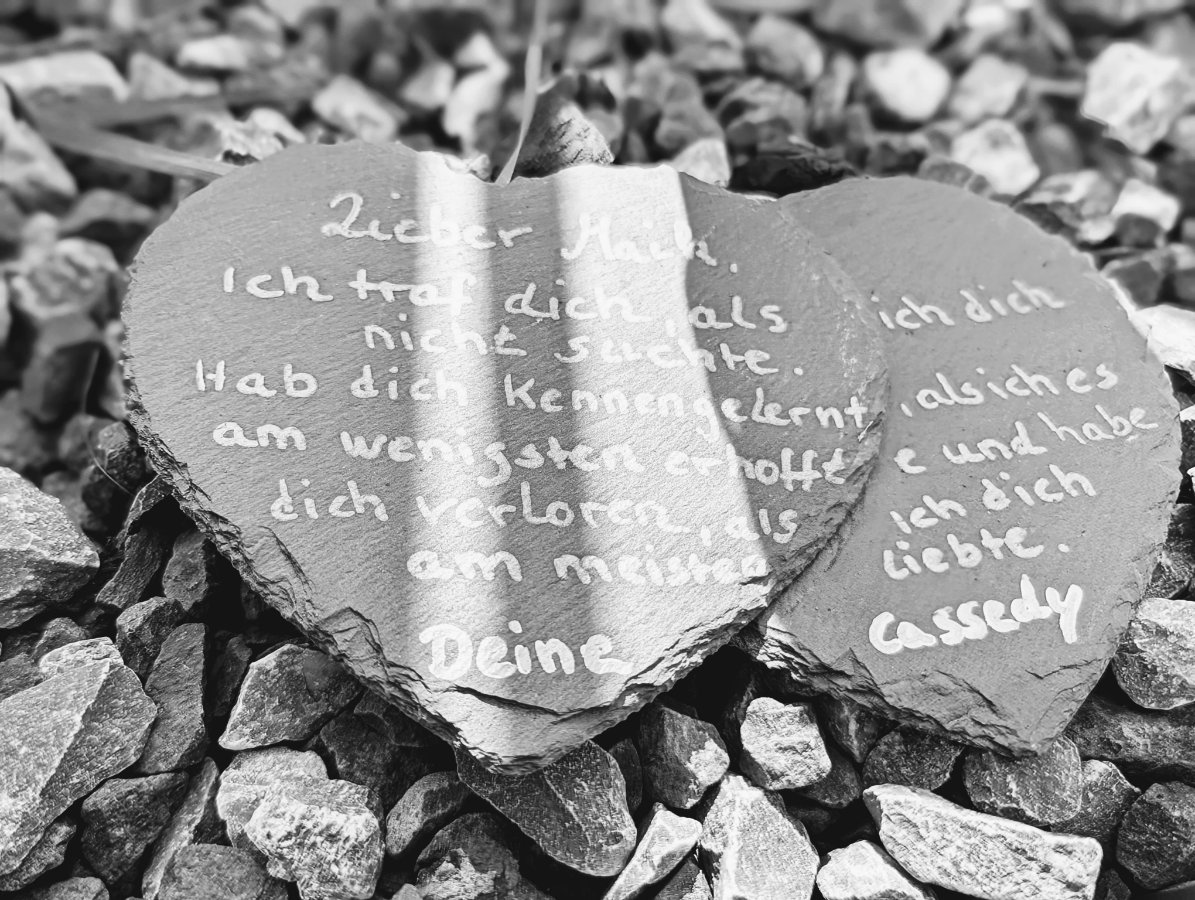 Lieber Maik.
Ich traf dich , als ich dich
nicht suchte.
Hab dich kennengelernt , als ich es
am wenigsten erhofft e und habe
dich verloren , als ich dich
am meisten liebte.
Deine Cassedy